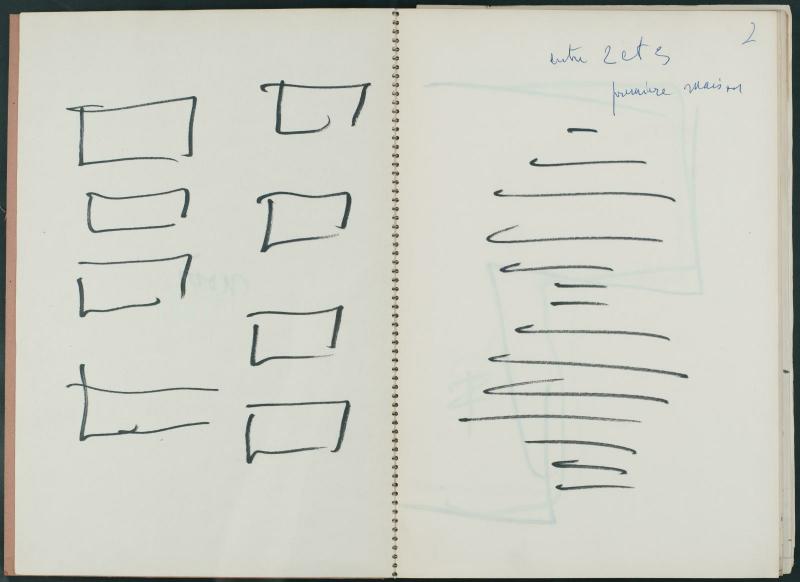 2
entre 2 et 3
première maison